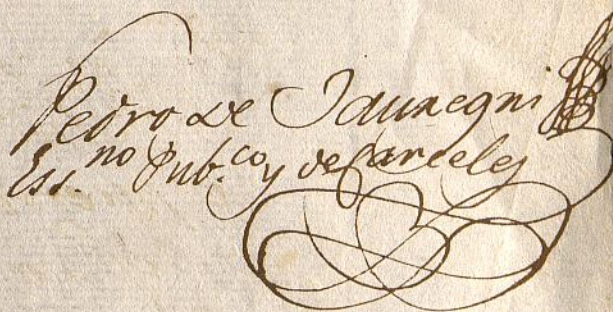 Pedro de Jaunegui
Ess.no Pub.co y de Carceles